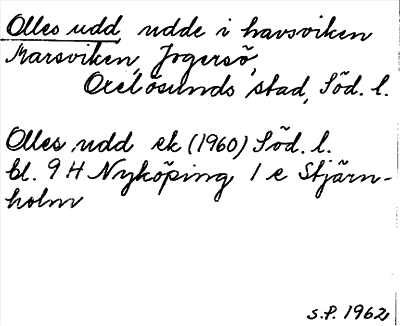 Olles udd udde i havsviken
Marsviken, Jogersö,
Oxelösunds stad, Söd. l.
Olles udd ek (1960) Söd. l.
bl. 9 H Nyköping 1 e Stjärn-
holm
S.P. 1962